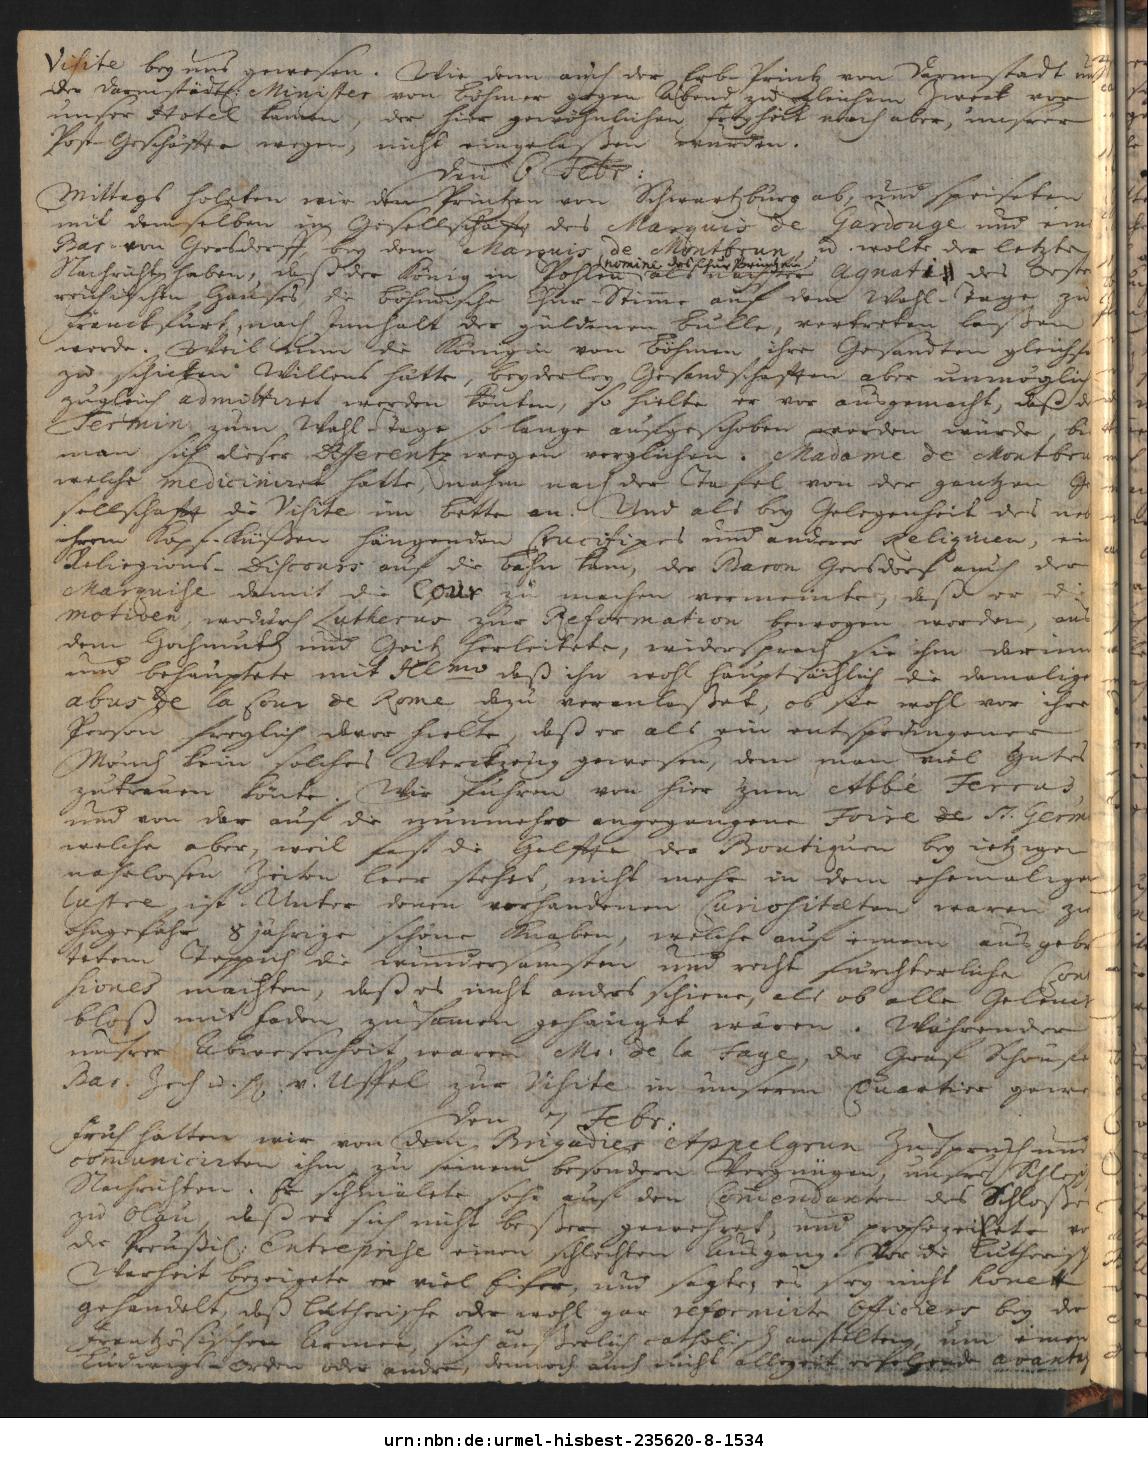 Visite bey uns gewesen. Wie denn auch der Erb-Printz von Darmstadt und
der Darmstädt: Minister von Böhmer gegen Abend zu gleichem Zweck vor
unser Hotel kamen, der hier gewöhnlichen Freyheit nach aber, unsrer
Post-Geschäffte wegen, nicht eingelaßen wurden.
den 6 Febr:
Mittags holeten wir den Printzen von Schwartzburg ab, und speiseten
mit demselben in Gesellschafft des Marquis de Gardouge und eines
Bar. von Gersdorff bey dem Marquis de Montbrun, u. wolte der letzte
Nachricht haben, daß der König in Pohlen nomine des Chur Printzen als nächster Agnati des Oester
reichischen Hauses die Böhmische Chur-Stimme auf dem Wahl-Tage zu
Franckfurt, nach Innhalt der güldenen Bulle, vertreten laßen
werde. Weil nun die Königin von Böhmen ihre Gesandten gleichfals
zu schicken Willens hätte, beyderley Gesandschafften aber unmöglich
zugleich admittiret werden könten, so hielte er vor ausgemacht, daß der
Termin zum Wahl-Tage so lange aufgeschoben werden würde, biß
man sich dieser Differentz wegen verglichen. Madame de Montbrun
welche mediciniret hatte, nahm nach der Tafel von der gantzen Ge
sellschafft die Visite im Bette an. Und als bey Gelegenheit des neben
ihrem Kopf-Küßen hängenden Crucifixes und anderer Reliquien, ein
Religions-Discours auf die Bahn kam, der Baron Gersdorf auch der
Marquise damit die Cour zu machen vermeinte, daß er die
motiven, wodurch Lutherus zur Reformation bewogen worden, aus
dem Hochmuth und Geitz herleitete, widersprach sie ihm darinn
und behauptete mit daß ihn wohl hauptsächlich die damaligen
abus de la Cour de Rome dazu veranlaßet, ob sie wohl vor ihre
Person freylich davor hielte, daß er als ein entsprungener
Mönch kein solches Werckzeug gewesen, dem man viel Gutes
zutrauen könte. Wir fuhren von hier zum Abbé Ferrus,
und von dar auf die nunmehro angegangene Foire de St. Germ
welche aber, weil fast die Helffte der Boutiquen bey ietzigen
nahrlosen Zeiten leer stehet, nicht mehr in dem ehemaligen
lustre ist. Unter denen vorhandenen Curiositæten waren zwey
ohngefähr 8 jährige schöne Knaben, welche auf einem ausgebrei
tetem Teppich die wundersamsten und recht fürchterliche Con
siones machten, daß es nicht anders schiene, als ob alle Gelencke
bloß mit Faden zusammen gehänget wären. Währender
unsrer Abwesenheit waren Mr. de la Fage, der Graf
Bar. Zech u. H. v. Uffel zur Visite in unserm Quartier gewe
den 7 Febr:
Früh hatten wir von dem Brigadier Appelgrun Zuspruch und
communicirten ihm zu seinem besondern Vergnügen, unsre Schles:
Nachrichten. Er schmälete sehr auf den Commendanten des Schloßes
zu Olau, daß er sich nicht beßer gewehret, und prophezeihete vo
der Preußis: Entreprise einen schlechten Ausgang. Vor die Lutherisch
Warheit bezeigete er viel Eifer, und sagte, es sey nicht honett
gehandelt, daß Lutherische oder wohl gar reformirte Officiers bey der
Frantzösischen Armee, sich äußerlich catholisch anstelten, um einen
Ludwigs-Orden oder andre, dennoch auch nicht allezeit erfolgende avanta
urn:nbn:de:urmel-hisbest-235620-8-1534